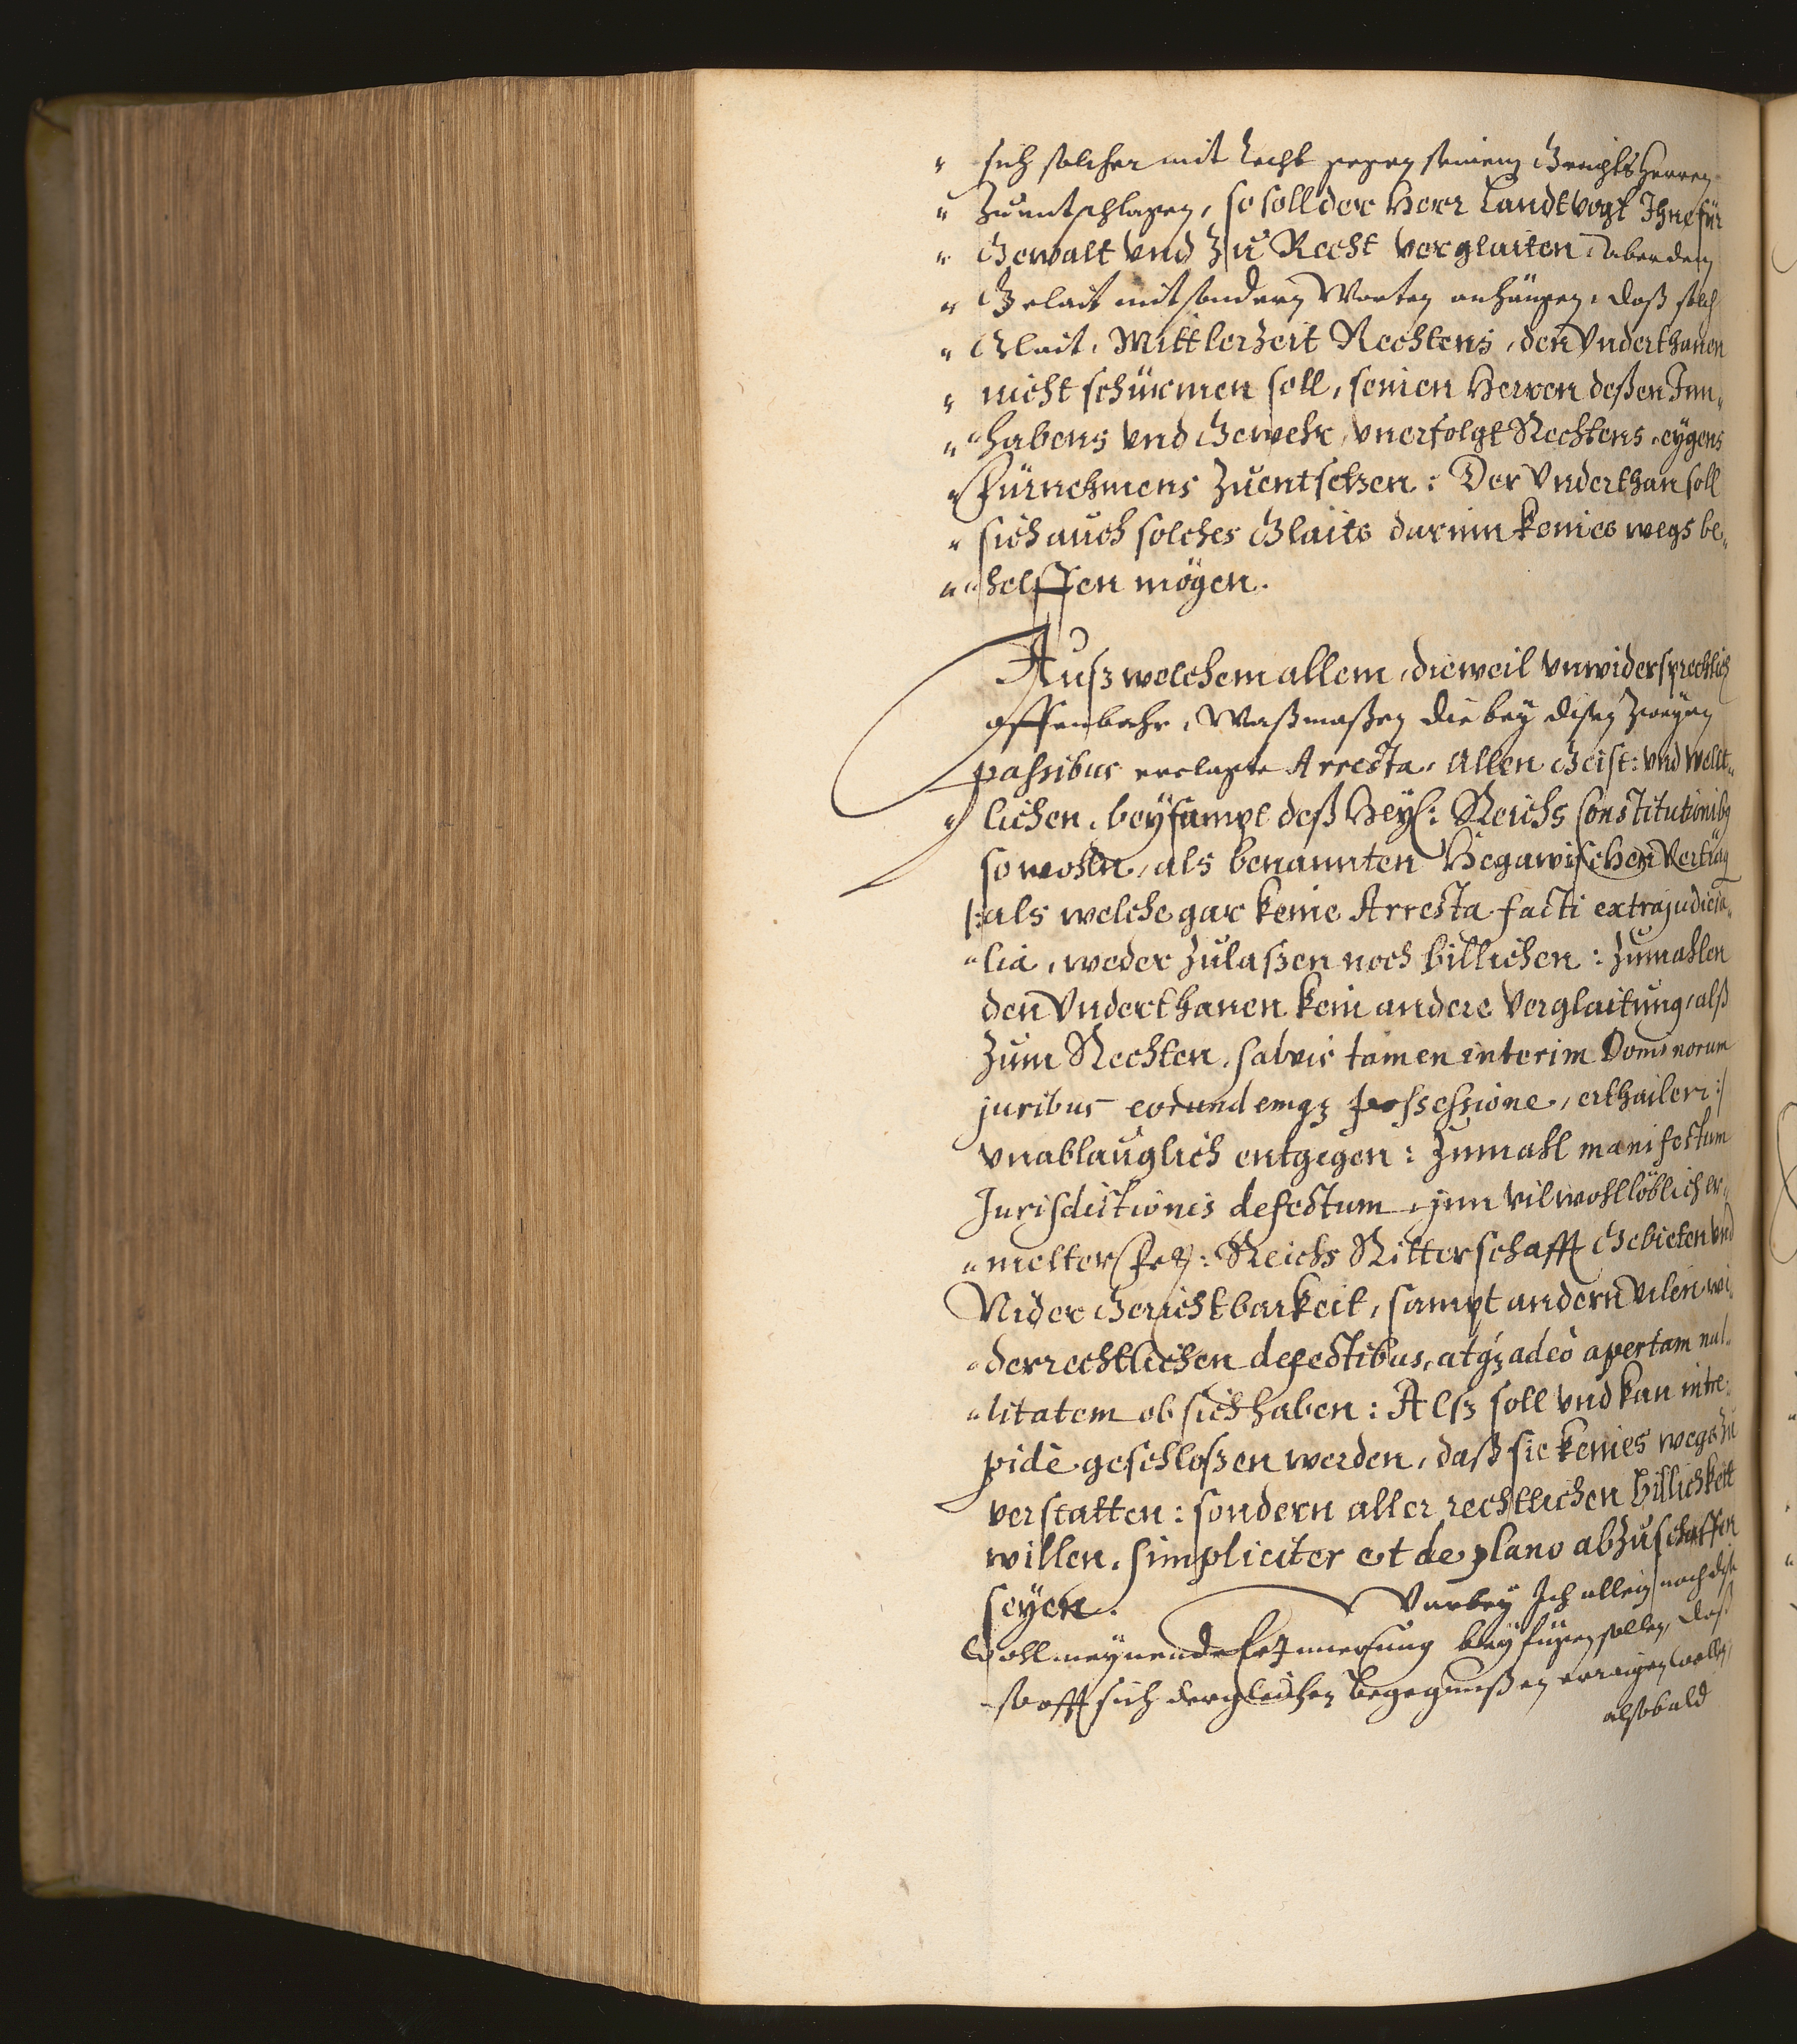 " sich solcher mit Recht gegen seinem GerichtsHerren
" Zuentschlagen, so soll der Herr Landtvogt Ihne für
" Gewalt vnd Zu Recht verglaiten, aber dem
" Gelait mit sondern Worten anhängen, daß solch
" Glait, Mittlerzeit Rechtens, den Vnderthanen
" nicht schürmen soll, seinen Herren deßen Inn„
" „habens vnd Gewehr, vnerfolgt Rechtens, eygens
" Fürnehmens Zuentsetzen: Der Vnderthan soll
" sich auch solches Glaits darinn keines wegs be„
" „helffen mögen.
Auß welchem allem, dieweil vnwidersprechlich
offenbahr, Waßmaßen die bey disen zweyen
passibus erclagte Arresta, Allen Geist: vnd Welt„
„lichen, beysampt deß Heyl: Reichs Constitutionibus
so wohln, als benannten Hegawischen Vertrag
/:als welche gar keine Arresta facti extrajudicia„
„lia, weder Zulaßen noch billichen: Zumahlen
den Vnderthanen kein andere Verglaitung, alß
Zum Rechten, salvis tamen interim Dominorum
juribus eorundemq3 possessione, erthailen:/
vnablauglich entgegen: Zumahl manifestum
Jurisdictionis defectum, jnn vilwohllöblich er„
„melter Frey: Reichs Ritterschafft Gebieten vnd
Nider Gerichtbarkeit, sampt andern vilen wi„
„derrechtlichen defectibus, atq3 adeò apertam nul„
„litatem ob sich haben: Alß soll vnd kan intre„
pidè geschloßen werden, daß sie keines wegs zu
verstatten: sondern aller rechtlichen billichkeit
willen, simpliciter et de plano abzuschaffen
seyen. Darbey Ich allein noch dise
Wollmeynende Erinnerung beyfügen sollen, daß
so offt sich dergleichen begegnußen erraigen wollen,
alßbald